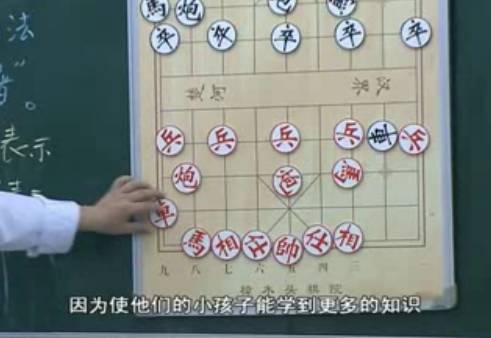 法
"
。
表示
馬 炮
卒 卒 卒 卒 卒
河 漢界
兵 兵 兵 兵 車 兵
炮 炮 馬
車
馬 相 仕 帥 仕 相
九 八 七 六 五 四 三
樟木头棋院
因为使他们的小孩子能学到更多的知识